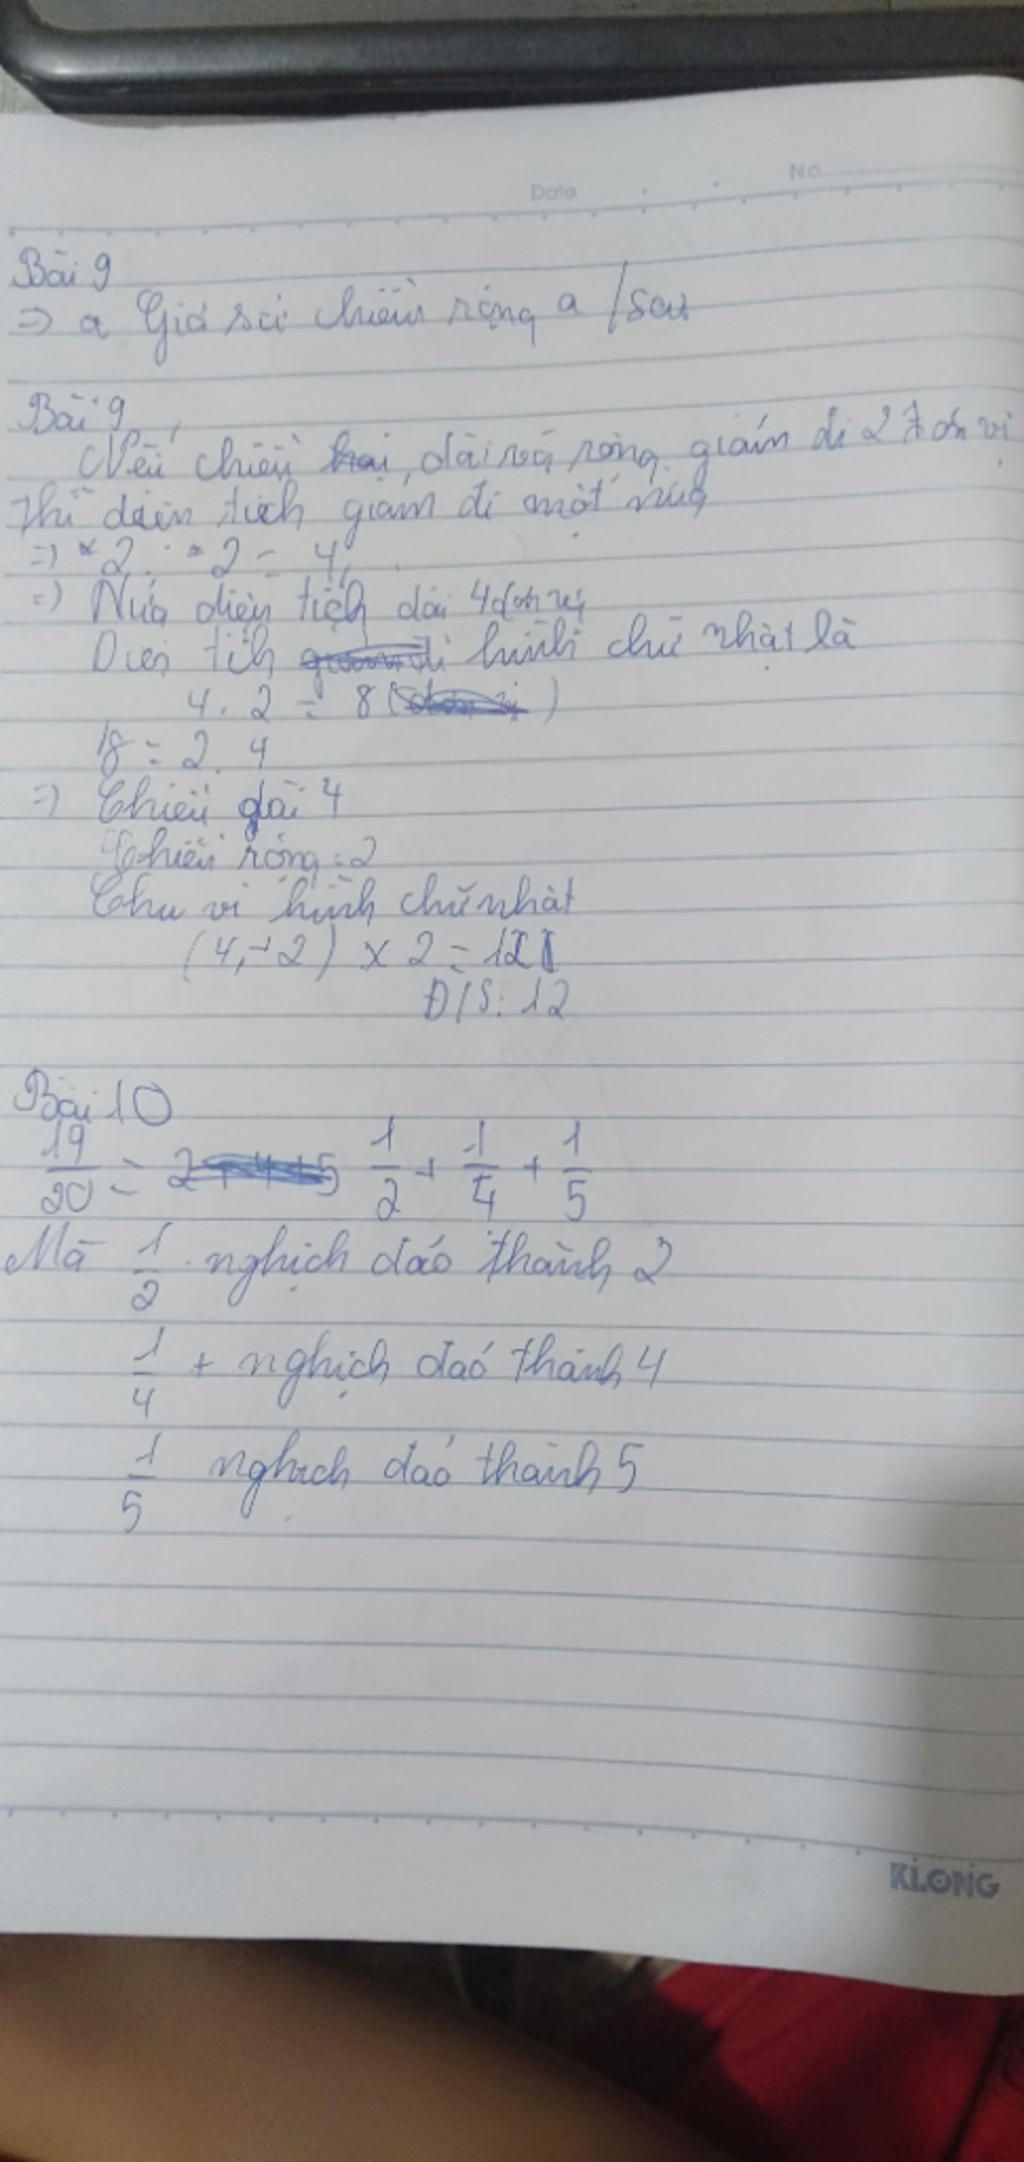 Date No
Bài 9
=> a Giả sử chiều rộng a
Bài 9
Nếu chiều dài và rộng giảm đi 2 đơn vị
thì diện tích giảm đi một nửa
=> 2 . 2 = 4
=> Nửa diện tích dài 4 đơn vị
Diện tích hình chữ nhật là
4 . 2 = 8
8 = 2 . 4
=> Chiều dài 4
Chiều rộng = 2
Chu vi hình chữ nhật
(4 + 2) x 2 = 12
Đ/S: 12
Bài 10
19/20 = 1/2 + 1/4 + 1/5
Mà 1/2 nghịch đảo thành 2
1/4 + nghịch đảo thành 4
1/5 nghịch đảo thành 5
KLONG